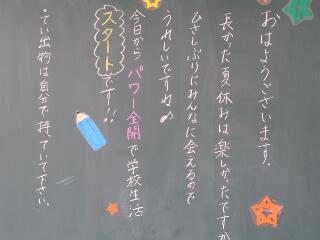 おはようございます。
長かった夏休みは楽しかったですか
ひさしぶりにみんなに会えるので
うれしいですね♪
今日から パワー全開で学校生活
スタートです!!
・てい出物は自分で持っていて下さい。